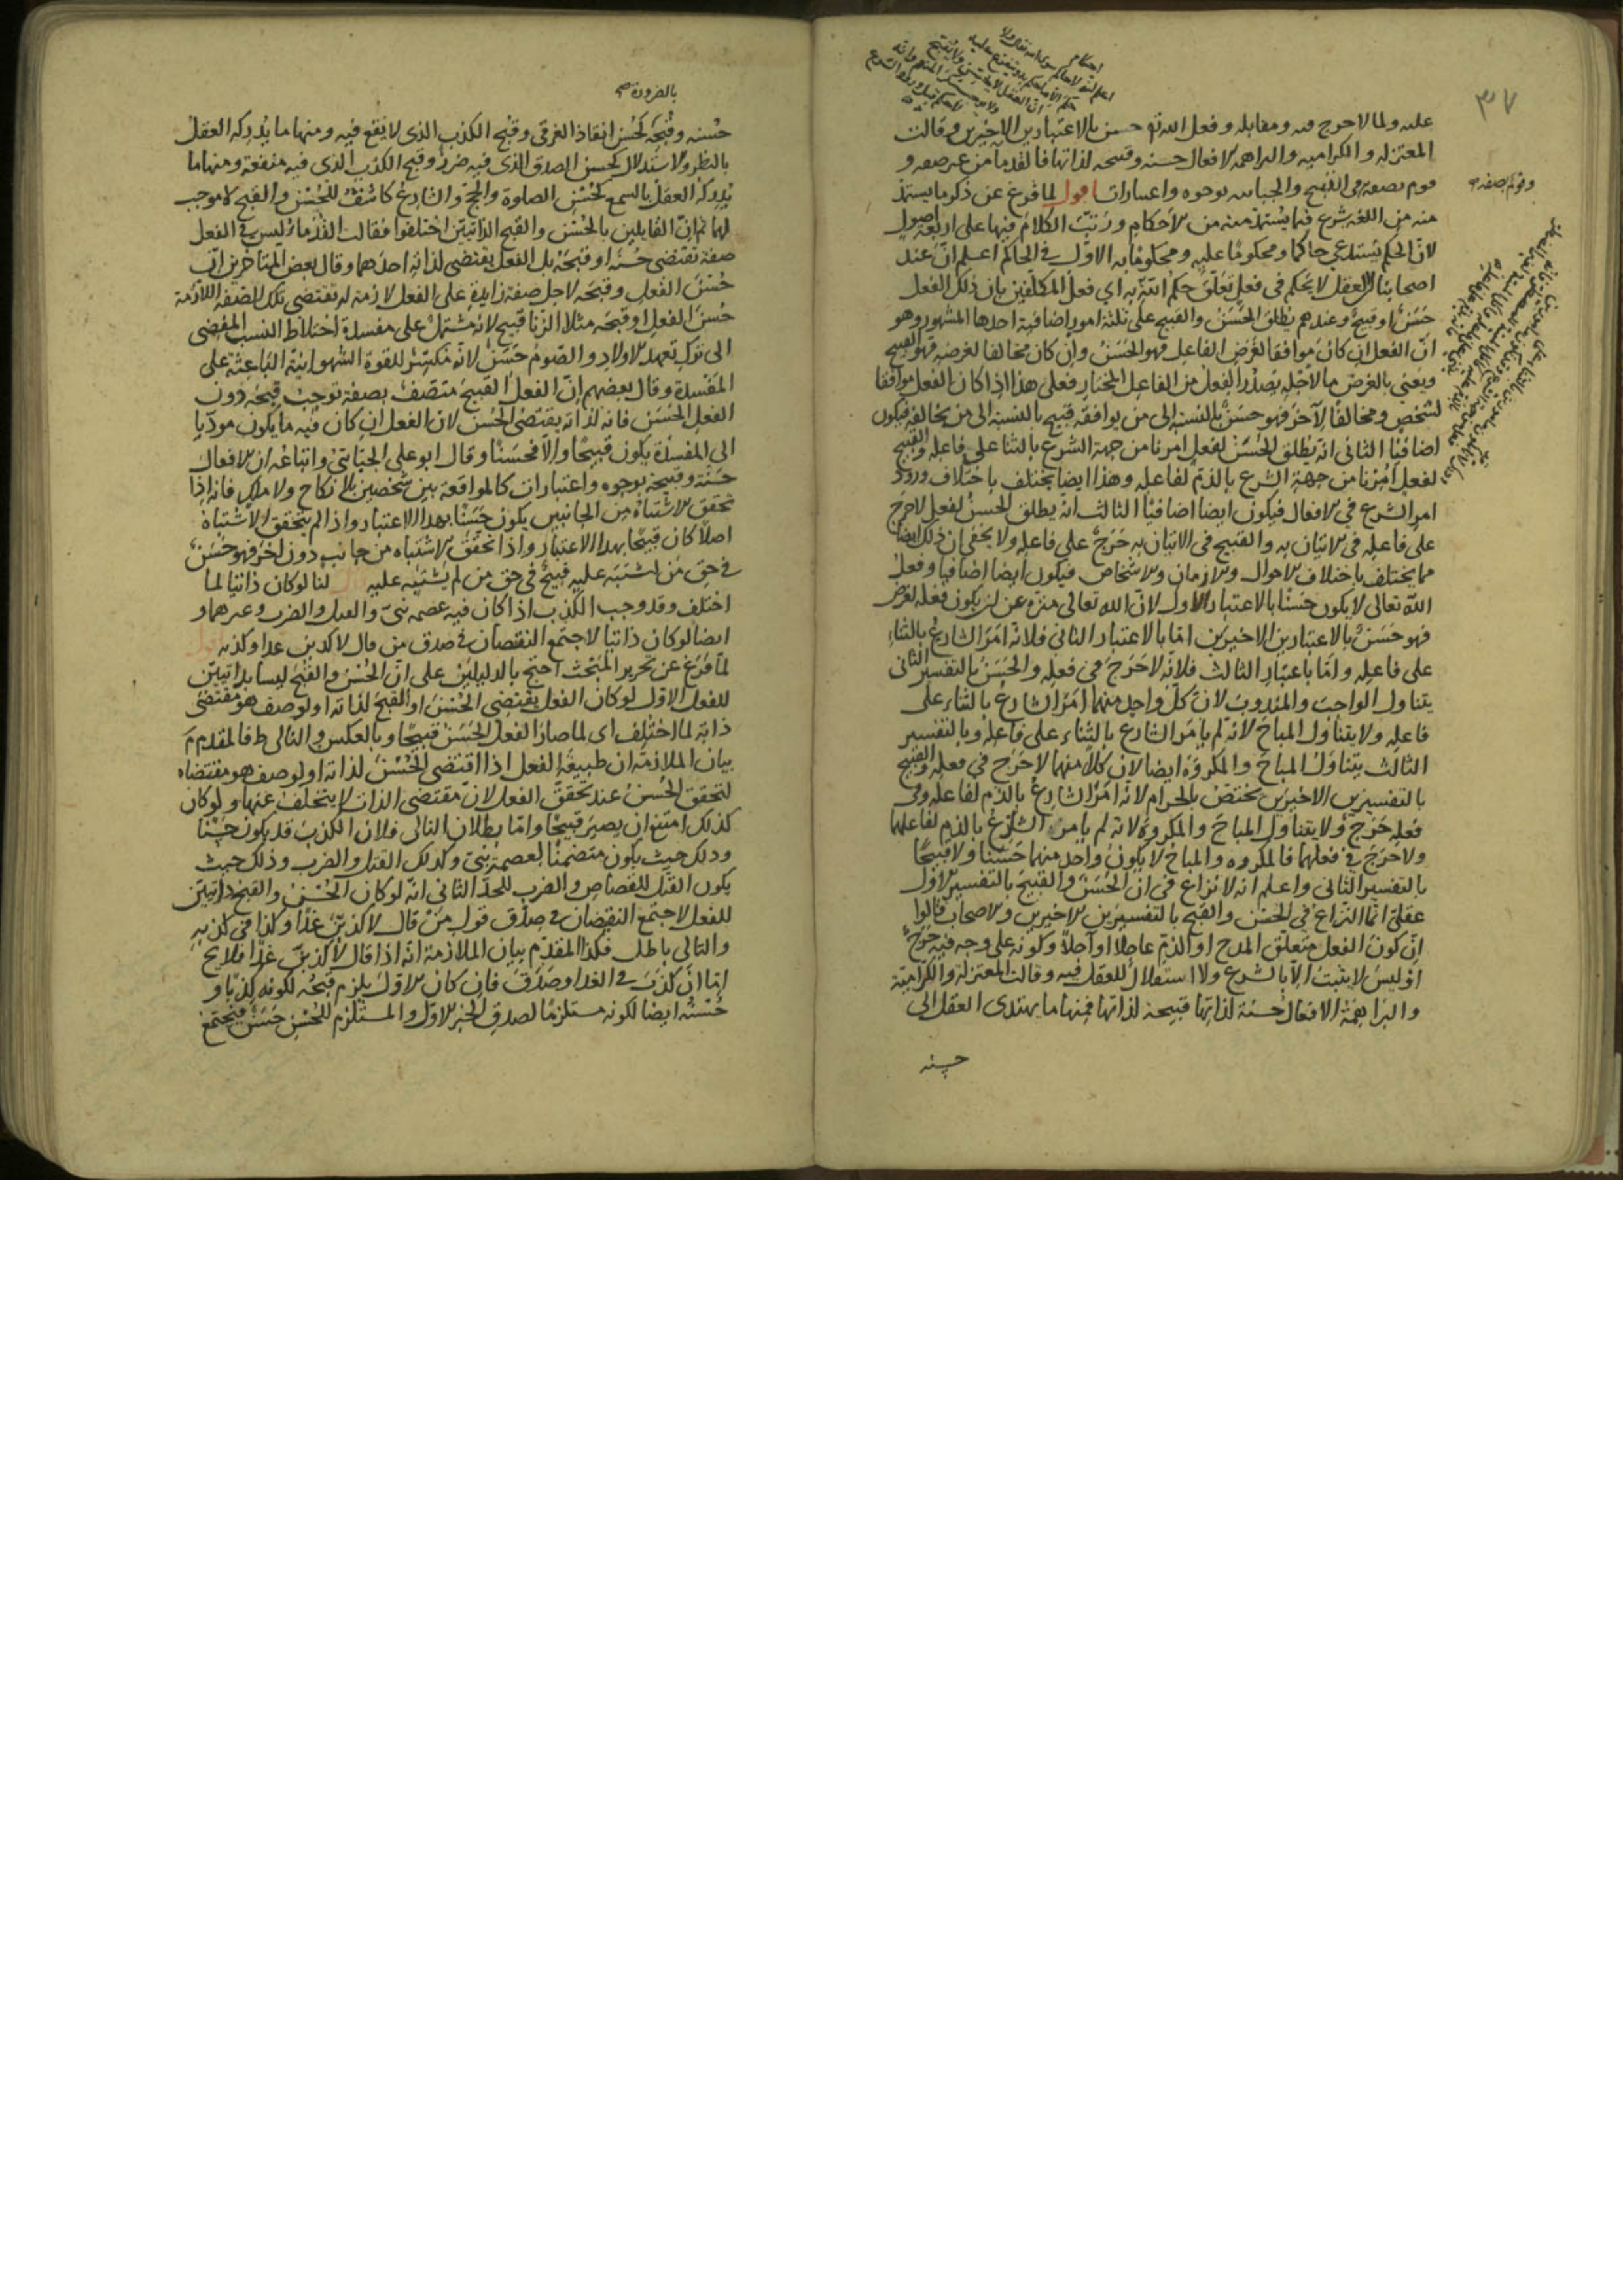 ٣٧
عليه ولما لا حرج فيه ومقابله وفعل الله تع حسن بالاعتبارين الاخيرين وقالت
المعتزله والكراميه والبراهمه الافعال حسنه وقبيحه لذاتها فالقدما من غير صفه و
قوم بصفه وقوم بصفه في القبيح والجبائيه بوجوه واعتبارات اقول لما فرغ عن ذكر ما يستمد
منه من اللغه شرع فيما يستمد منه من الاحكام ورتب الكلام فيها على اربعة اصول
لان الحكم يستدعي حاكما ومحكوما عليه ومحكوما به الاول في الحاكم اعلم ان عند
اصحابنا العقل لا يحكم في فعل تعلق حكم الله به اي فعل المكلفين بان ذلك الفعل
حسن او قبيح وعندهم يطلق الحسن والقبيح على ثلثة امور اضافية احدها المشهور وهو
ان الفعل ان كان موافقا لغرض الفاعل فهو الحسن وان كان مخالفا لغرضه فهو القبيح
ويعني بالغرض ما لاجله يصدر الفعل من الفاعل المختار فعلى هذا اذا كان الفعل موافقا
لشخص ومخالفا لآخر فهو حسن بالنسبة الى من يوافقه قبيح بالنسبة الى من يخالفه فيكون
اضافيا الثاني انه يطلق الحسن لفعل امرنا من جهة الشرع بالثنا على فاعله والقبيح
لفعل امرنا من جهة الشرع بالذم لفاعله وهذا ايضا يختلف باختلاف ورود
امر الشرع في الافعال فيكون ايضا اضافيا الثالث انه يطلق الحسن لفعل لا حرج
على فاعله في الاتيان به والقبيح في الاتيان به حرج على فاعله ولا يخفى ان ذلك ايضا
مما يختلف باختلاف الاحوال والازمان والاشخاص فيكون ايضا اضافيا وفعل
الله تعالى لا يكون حسنا بالاعتبار الاول لان الله تعالى منزه عن ان يكون فعله لغرض
فهو حسن بالاعتبارين الاخيرين اما بالاعتبار الثاني فلانه امر الشارع بالثناء
على فاعله واما باعتبار الثالث فلانه لا حرج في فعله والحسن بالتفسير الثاني
يتناول الواجب والمندوب لان كل واحد منهما امر الشارع بالثناء على
فاعله ولا يتناول المباح لانه لم يامر الشارع بالثناء على فاعله وبالتفسير
الثالث يتناول المباح والمكروه ايضا لان كلا منهما لا حرج في فعله والقبيح
بالتفسيرين الاخيرين يختص بالحرام لانه امر الشارع بالذم لفاعله وفي
فعله حرج ولا يتناول المباح والمكروه لانه لم يامر الشارع بالذم لفاعلهما
ولا حرج في فعلهما فالمكروه والمباح لا يكون واحد منهما حسنا ولا قبيحا
بالتفسير الثاني واعلم انه لا نزاع في ان الحسن والقبيح بالتفسير الاول
عقلي انما النزاع في الحسن والقبح بالتفسيرين الاخيرين والاصحاب قالوا
ان كون الفعل متعلق المدح او الذم عاجلا او آجلا وكونه على وجه فيه حرج
او ليس لا يثبت الا بالشرع ولا استقلال للعقل فيه وقالت المعتزلة والكرامية
والبراهمة الافعال حسنة لذاتها قبيحة لذاتها فمنها ما يهتدى العقل الى
حسنه
بالضرورة صح
حسنه وقبحه كحسن انقاذ الغرقى وقبح الكذب الذي لا نفع فيه ومنها ما يدركه العقل
بالنظر والاستدلال كحسن الصدق الذي فيه ضرر وقبح الكذب الذي فيه منفعة ومنها ما
يدركه العقل بالسمع كحسن الصلوة والحج والشارع كاشف للحسن والقبح لا موجب
لهما ثم ان القايلين بالحسن والقبح الذاتيين اختلفوا فقالت القدماء ليس في الفعل
صفة تقتضى حسنه او قبحه بل الفعل يقتضى لذاته احدهما وقال بعض المتاخرين ان
حسن الفعل وقبحه لاجل صفة زايدة على الفعل لازمة له تقتضى تلك الصفة اللازمة
حسن الفعل او قبحه مثلا الزنا قبيح لانه مشتمل على مفسدة اختلاط النسب المفضى
الى ترك تعهد الاولاد والصوم حسن لانه مكسر للقوة الشهوانية الباعثة على
المفسدة وقال بعضهم ان الفعل القبيح متصف بصفة توجب قبحه دون
الفعل الحسن فانه لذاته يقتضى الحسن لان الفعل ان كان فيه ما يكون موديا
الى المفسدة يكون قبيحا والا فحسنا وقال ابو على الجبائي واتباعه ان الافعال
حسنة وقبيحة بوجوه واعتبارات كالمواقعة بين شخصين بلا نكاح ولا ملك فانه اذا
تحقق الاشتباه من الجانبين يكون حسنا بهذا الاعتبار واذا لم يتحقق الاشتباه
اصلا كان قبيحا بهذا الاعتبار واذا تحقق الاشتباه من جانب دون آخر فهو حسن
في حق من اشتبه عليه قبيح في حق من لم يشتبه عليه قال لنا لو كان ذاتيا لما
اختلف وقد وجب الكذب اذا كان فيه عصمه نبى والقتل والضرب وغيرهما و
ايضا لو كان ذاتيا لاجتمع النقيضان في صدق من قال لاكذبن غدا وكذبه اقول
لما فرغ عن تحرير المبحث احتج بالدليلين على ان الحسن والقبح ليسا بذاتيين
للفعل الاول لو كان الفعل يقتضى الحسن او القبح لذاته او لوصف هو مقتضى
ذاته لما اختلف اى لما صار الفعل الحسن قبيحا وبالعكس والتالى ط فالمقدم م
بيان الملازمة ان طبيعة الفعل اذا اقتضى الحسن لذاته او لوصف هو مقتضاه
لتحقق الحسن عند تحقق الفعل لان مقتضى الذات لا يتخلف عنها ولو كان
كذلك امتنع ان يصير قبيحا واما بطلان التالى فلان الكذب قد يكون حسنا
وذلك حيث يكون متضمنا لعصمة نبى وكذلك القتل والضرب وذلك حيث
يكون القتل للقصاص والضرب للحد الثاني انه لو كان الحسن والقبح ذاتيين
للفعل لاجتمع النقيضان في صدق قول من قال لاكذبن غدا وكذا في كذبه
والتالى باطل فكذا المقدم بيان الملازمة انه اذا قال لاكذبن غدا فلا يخ
اما ان كذب في الغد او صدق فان كان الاول يلزم قبحه لكونه كذبا و
حسنه ايضا لكونه مستلزما لصدق الخبر الاول والمستلزم للحسن حسن فيجتمع